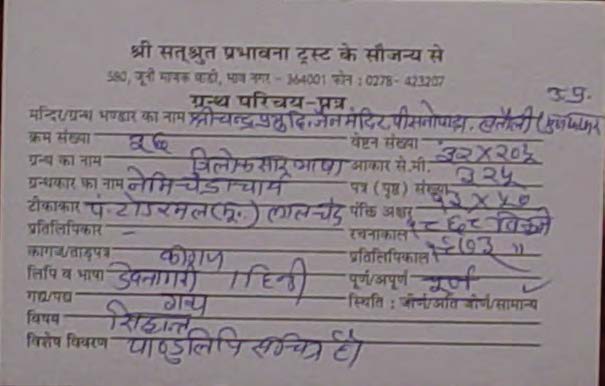 श्री सत्श्रुत प्रभावना ट्रस्ट के सौजन्य से
580, जूनी माणेक वाडी, भाव नगर - 364001 फोन : 0278- 423207
उ.प्र.
ग्रन्थ परिचय-पत्र
मन्दिर/ग्रन्थ भण्डार का नाम श्री चन्द्रप्रभु दि. जैन मंदिर, पीसनोपाड़ा, खतौली
क्रम संख्या ३६ वेष्टन संख्या
ग्रन्थ का नाम त्रिलोकसार भाषा आकार से.मी. ३२X२०५
ग्रन्थकार का नाम नेमिचंद्राचार्य पत्र (पृष्ठ) संख्या ३२५
टीकाकार पं. टोडरमल (मू.) लालचंद पंक्ति अक्षर १३X४०
प्रतिलिपिकार - रचनाकाल
कागज/ताड़पत्र कागज प्रतिलिपिकाल १८७३ "
लिपि व भाषा देवनागरी । हिन्दी पूर्ण/अपूर्ण पूर्ण
गद्य/पद्य गद्य स्थिति : जीर्ण/अति जीर्ण/सामान्य ✓
विषय सिद्धान्त
विशेष विवरण पाण्डुलिपि सचित्र है।